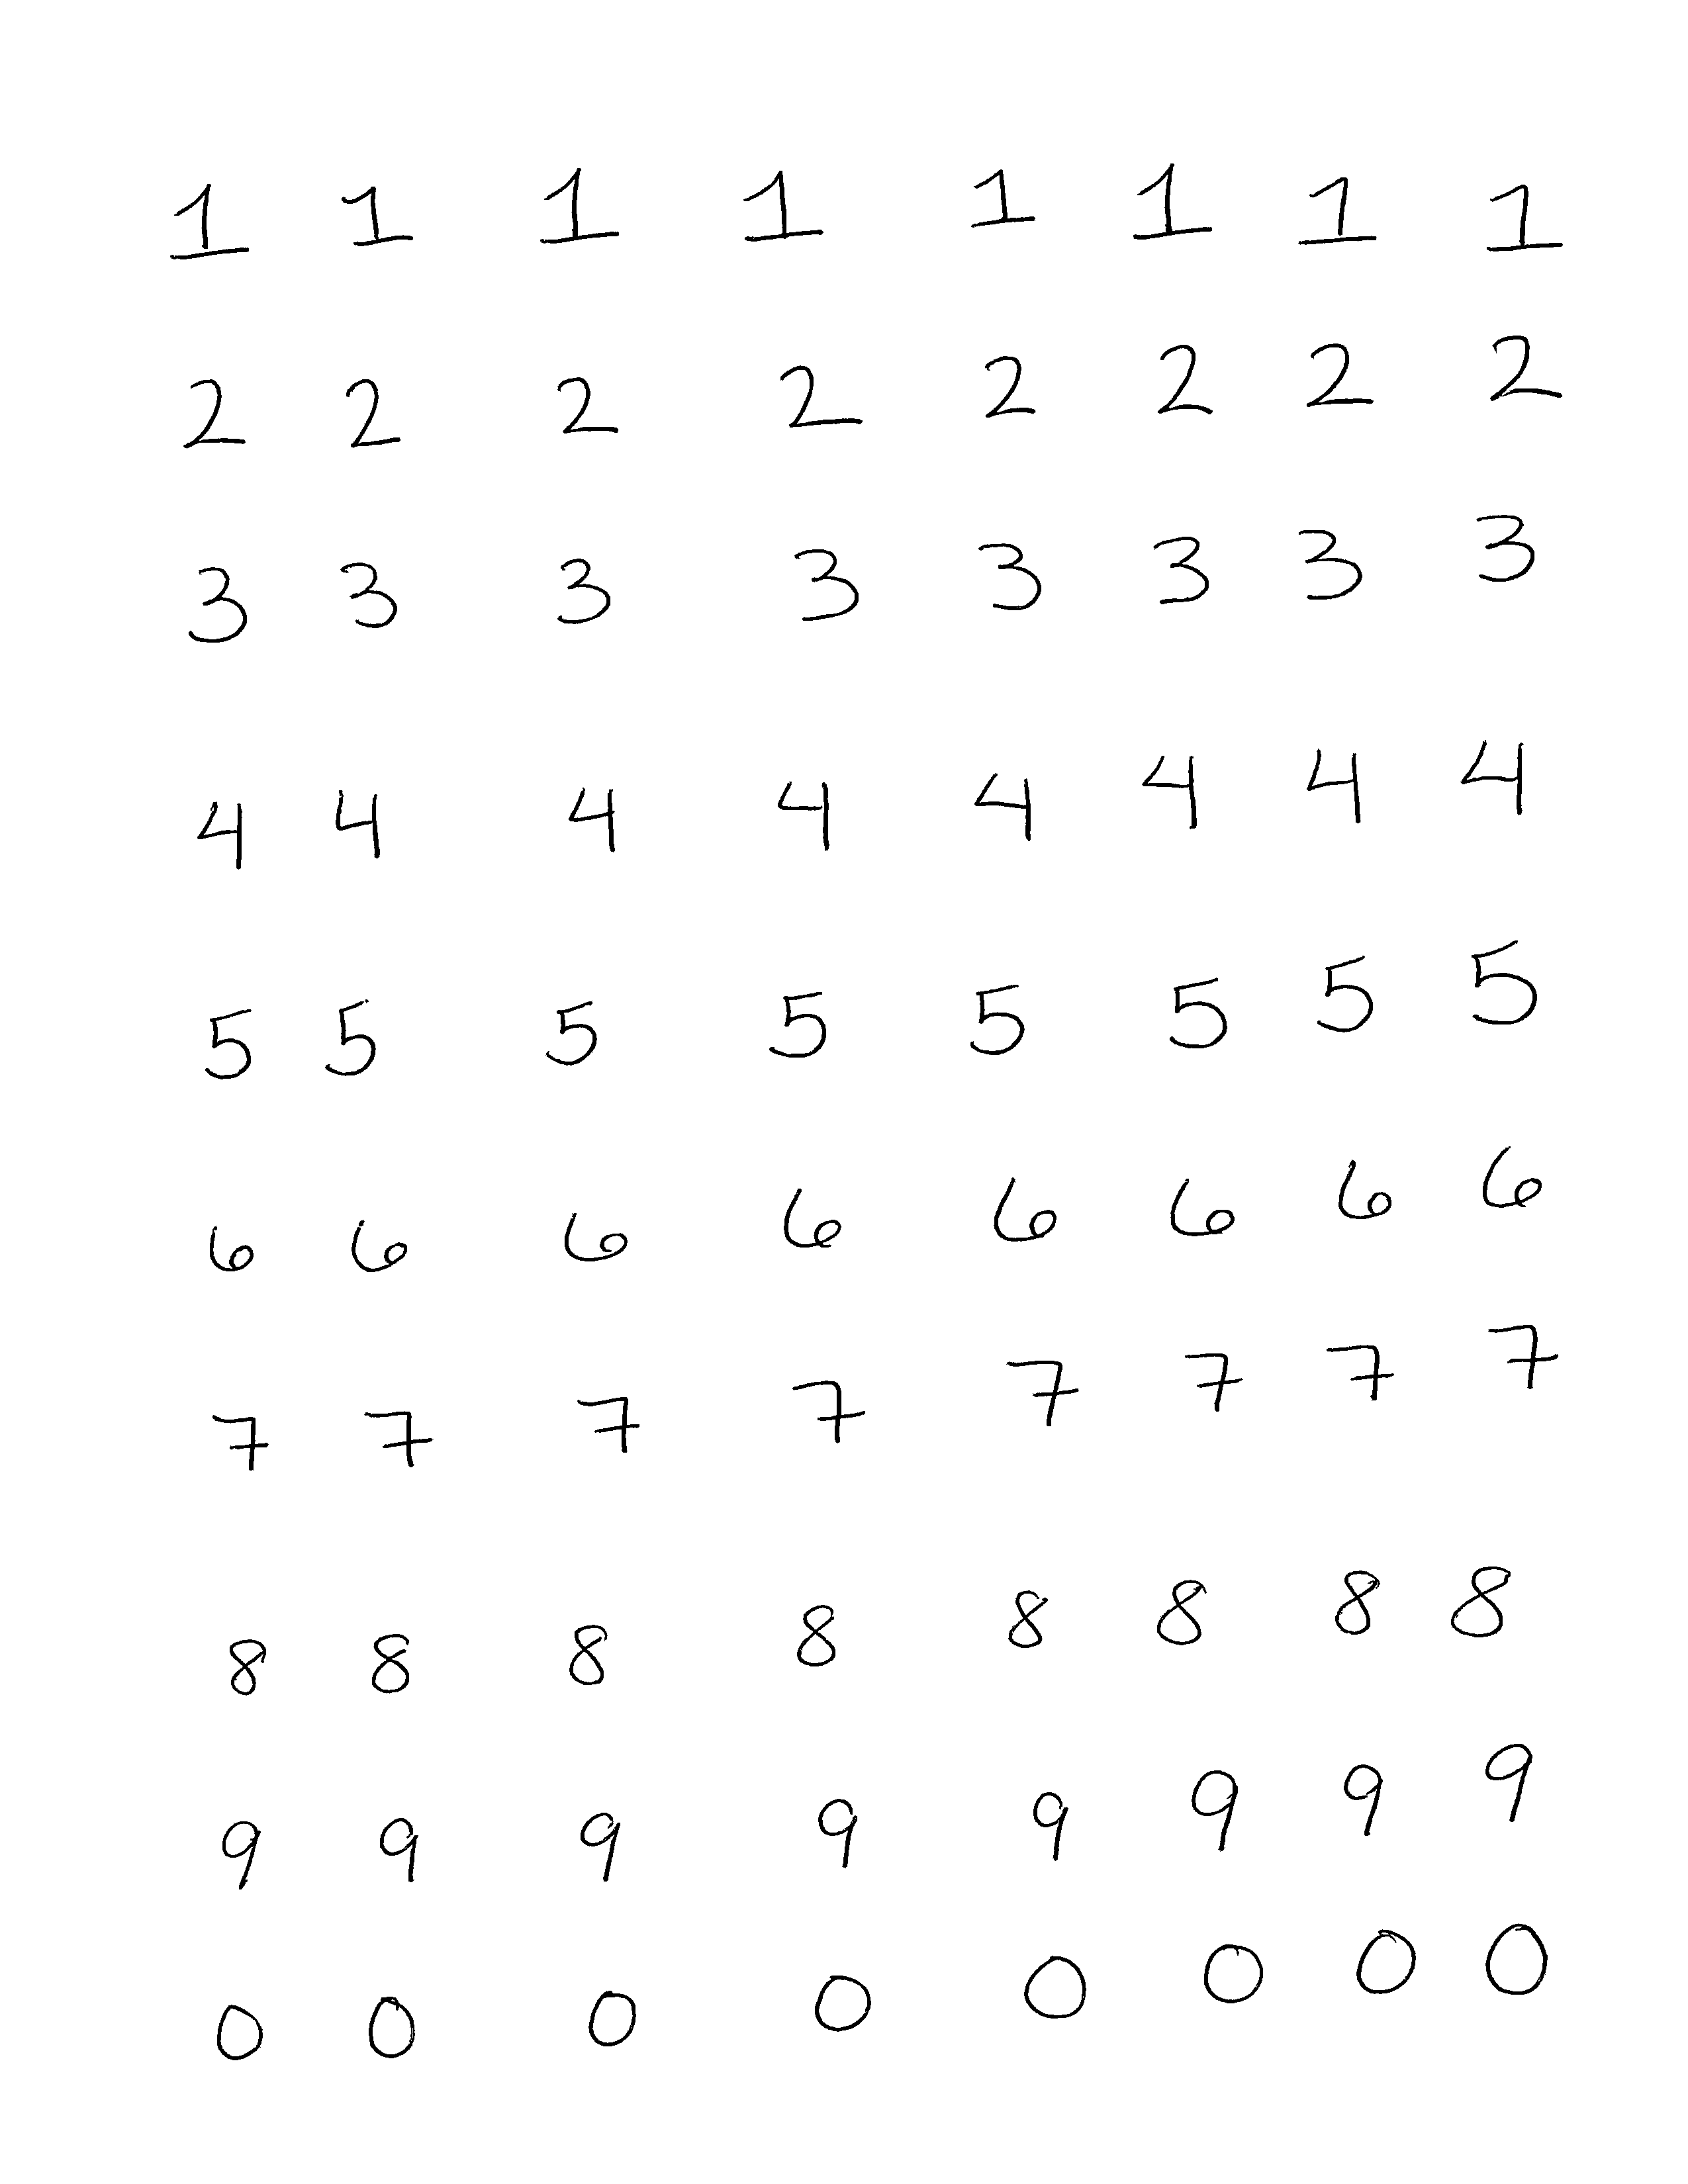 1 1 1 1 1 1 1 1
2 2 2 2 2 2 2 2
3 3 3 3 3 3 3 3
4 4 4 4 4 4 4 4
5 5 5 5 5 5 5 5
6 6 6 6 6 6 6 6
7 7 7 7 7 7 7 7
8 8 8 8 8 8 8 8
9 9 9 9 9 9 9 9
0 0 0 0 0 0 0 0